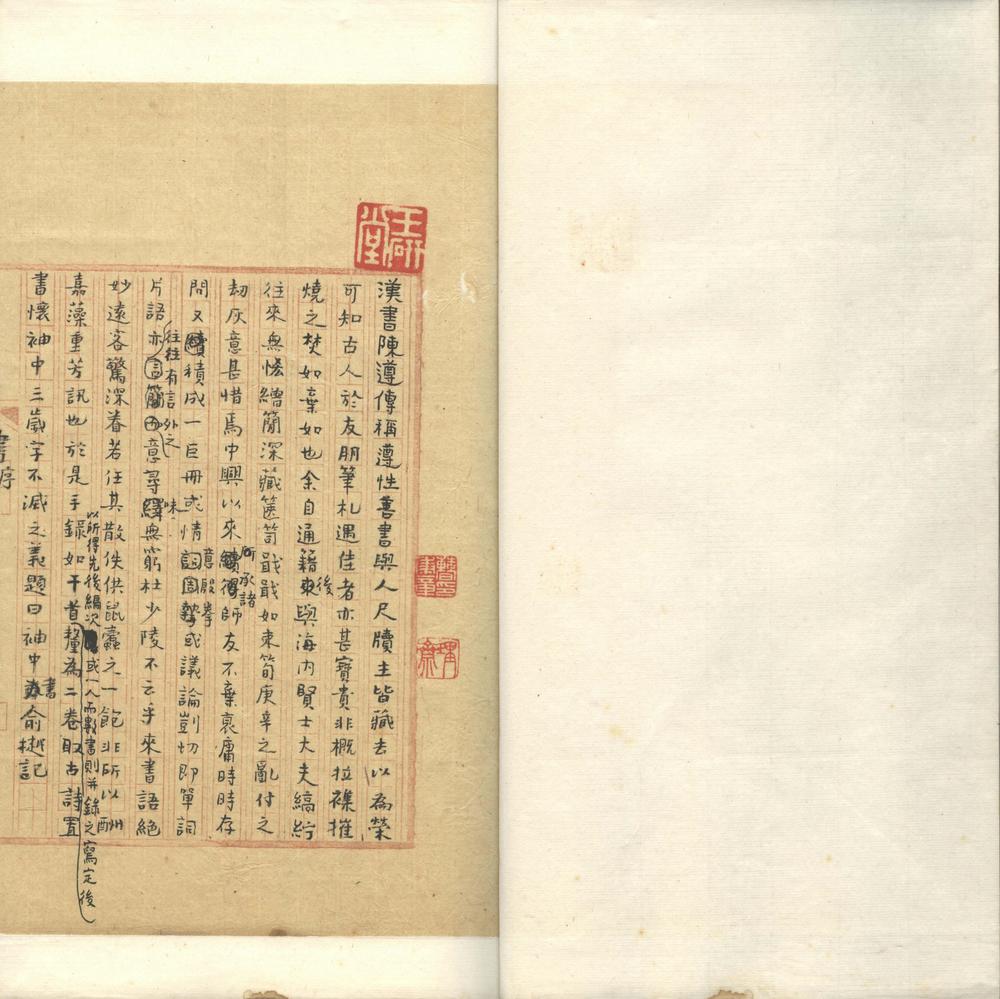 漢書陳遵傳稱遵性善書與人尺牘主皆藏去以為榮
可知古人於友朋筆札遇佳者亦甚寶貴非概拉襍摧
燒之焚如棄如也余自通籍後與海内賢士大夫縞紵
往來無慮繒簡深藏篋笥戢戢如束筍庚辛之亂付之
劫灰意甚惜焉中興以來所承諸師友不棄衰庸時時存
問又積成一巨冊或情意殷拳或議論剴切即單詞
片語亦往往有言外之意尋味無窮杜少陵不云乎來書語絕
妙遠客驚深眷若任其散佚供鼠蠹之一飽非所以酬
嘉藻重芳訊也於是手錄如干首
以所得先後編次或一人而數書則并錄之寫定後
釐為二卷取古詩置
書懷袖中三歲字不滅之義題曰袖中書俞樾記
書序